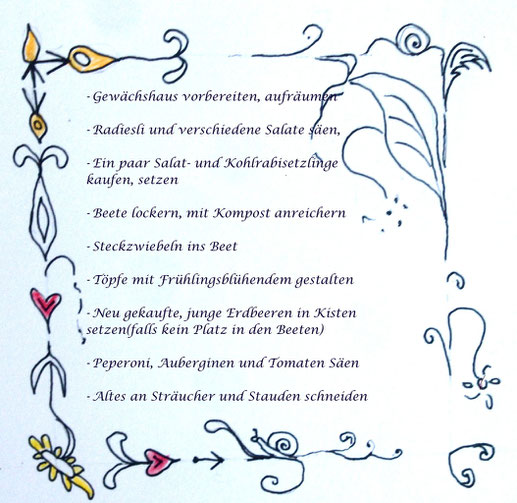 - Gewächshaus vorbereiten, aufräumen
- Radiesli und verschiedene Salate säen,
- Ein paar Salat- und Kohlrabisetzlinge
kaufen, setzen
- Beete lockern, mit Kompost anreichern
- Steckzwiebeln ins Beet
- Töpfe mit Frühlingsblühendem gestalten
- Neu gekaufte, junge Erdbeeren in Kisten
setzen(falls kein Platz in den Beeten)
- Peperoni, Auberginen und Tomaten Säen
- Altes an Sträucher und Stauden schneiden